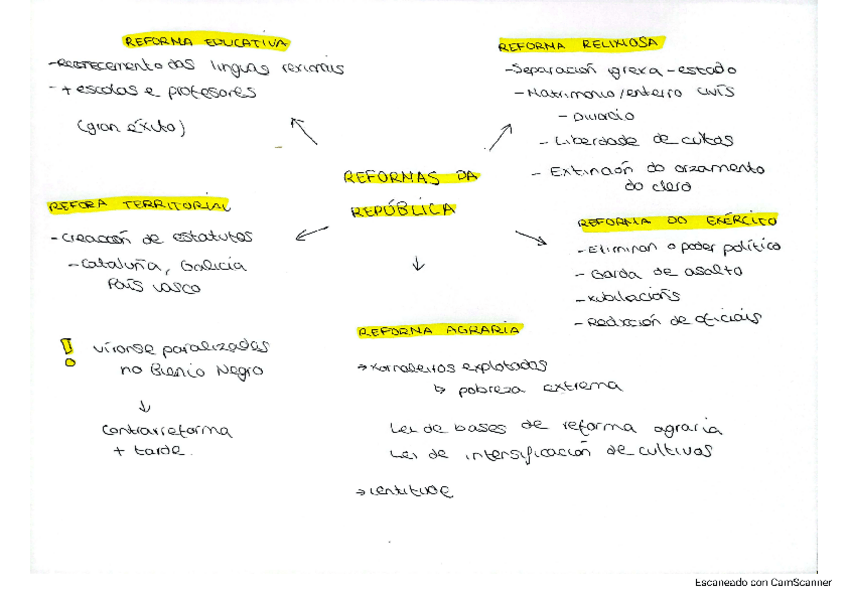 REFORMA EDUCATIVA
- linguas rexionais
- + escolas e profesores
(gran éxito)
REFORMA RELIXIOSA
- Separación igrexa - estado
- Matrimonio/enterro civís
- Divorcio
- Liberdade de cultos
- Extinción do orzamento
do clero
REFORMAS DA
REPÚBLICA
REFORA TERRITORIAL
- Creación de estatutos
- Cataluña, Galicia
País vasco
! víronse paralizadas
no Bienio Negro
↓
Contrarreforma
+ tarde.
REFORMA DO EXÉRCITO
- Eliminan o poder político
- Garda de asalto
- xubilacións
- Redución de oficiais
REFORMA AGRARIA
→ xornaleiros explotados
↳ pobreza extrema
Lei de bases de reforma agraria
Lei de intensificación de cultivos
→ lentitude
Escaneado con CamScanner